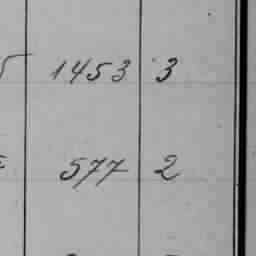 1453 3
577 2